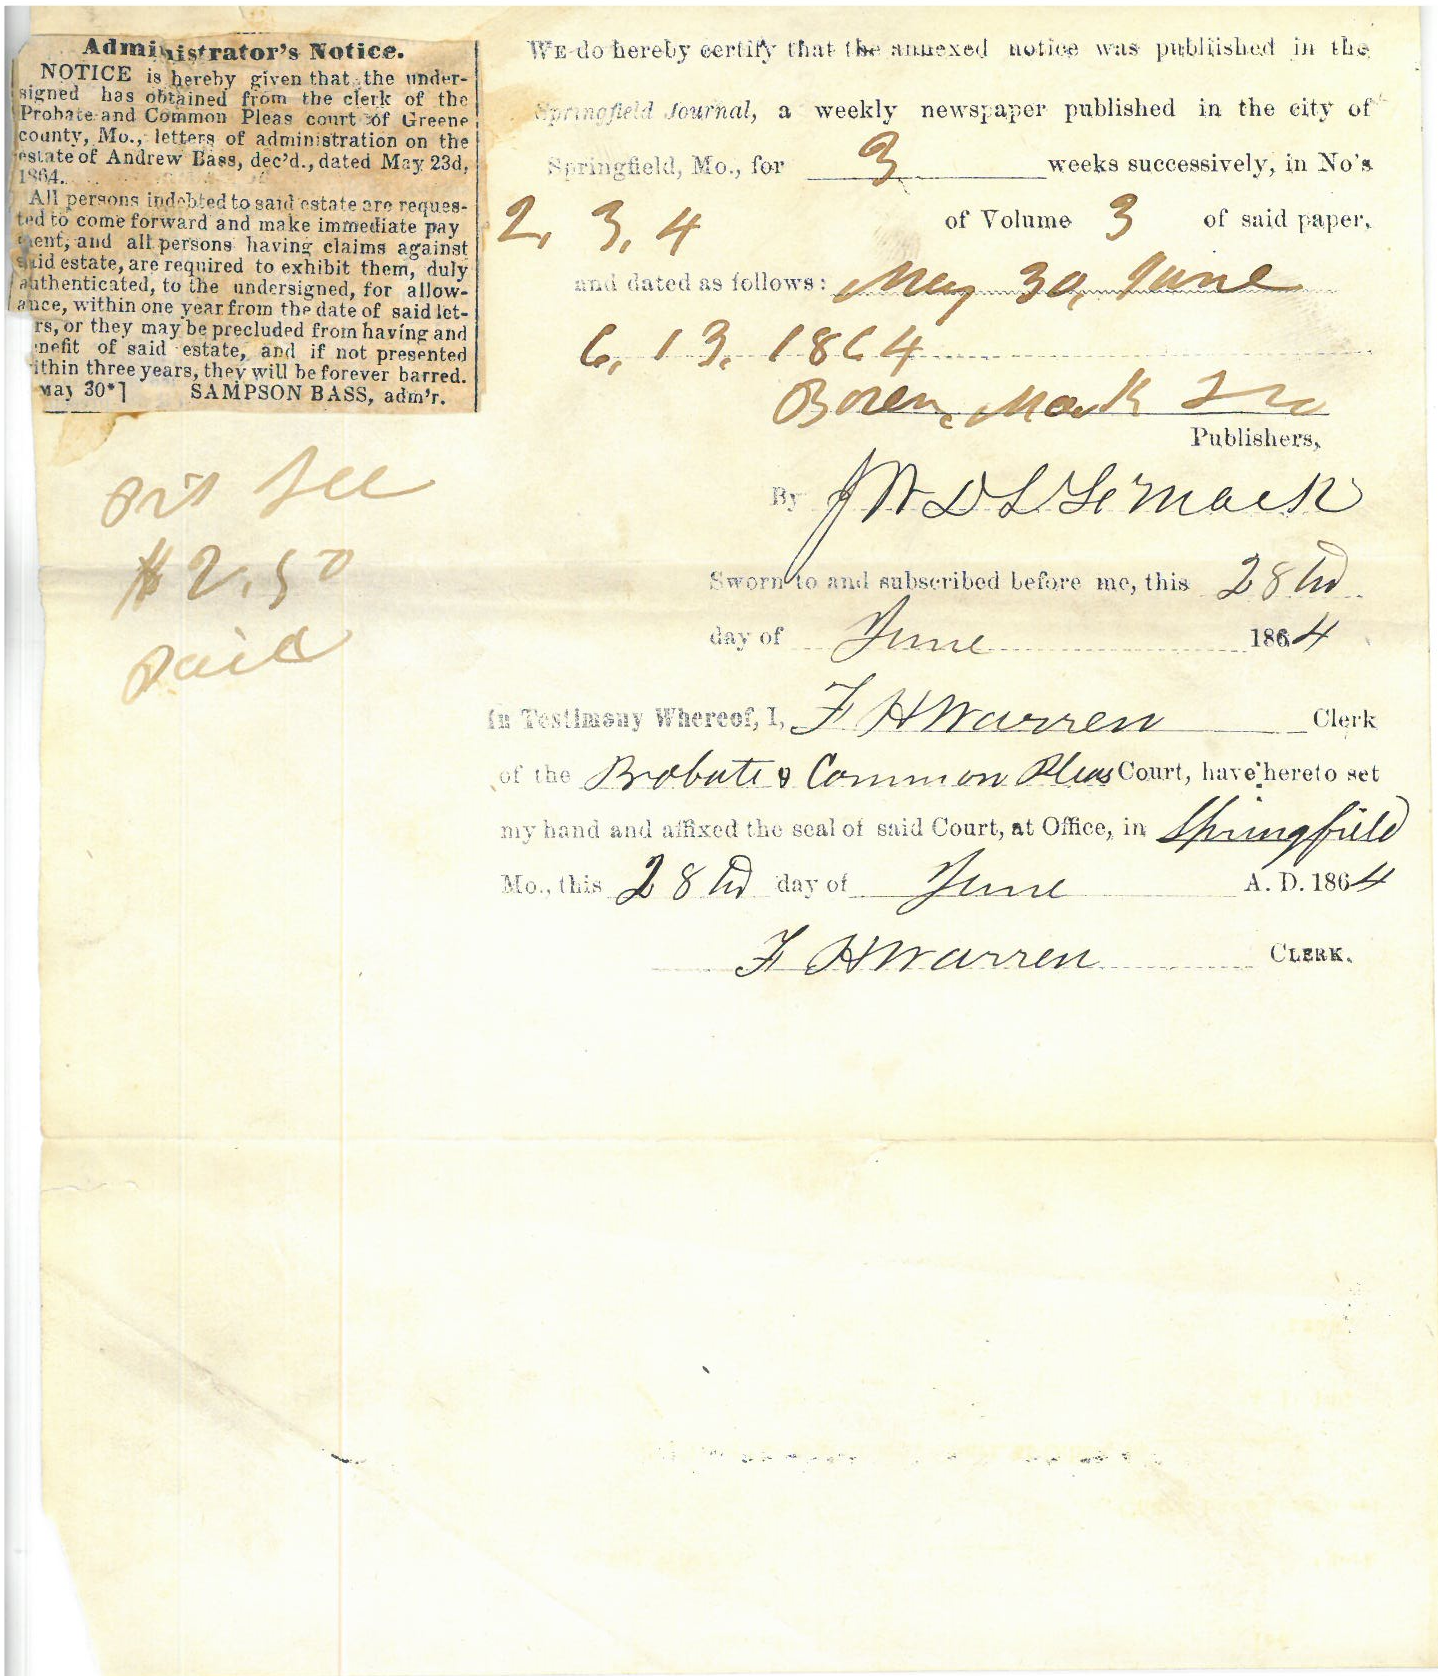 Administrator's Notice.
NOTICE is hereby given that the under-
signed has obtained from the clerk of the
Probate and Common Pleas court of Greene
county, Mo., letters of administration on the
estate of Andrew Bass, dec'd., dated May 23d,
1864.
All persons indebted to said estate are reques-
ted to come forward and make immediate pay
ment, and all persons having claims against
said estate, are required to exhibit them, duly
authenticated, to the undersigned, for allow-
ance, within one year from the date of said let-
rs, or they may be precluded from having and
nefit of said estate, and if not presented
ithin three years, they will be forever barred.
May 30*] SAMPSON BASS, adm'r.
Prt fee
$2.50
Paid
WE do hereby certify that the annexed notice was published in the
Springfield Journal, a weekly newspaper published in the city of
Springfield, Mo., for 3 weeks successively, in No's
2, 3, 4 of Volume 3 of said paper,
and dated as follows: May 30, June
6, 13, 1864
Boren, Mack
Publishers,
By Mack
Sworn to and subscribed before me, this 28th
day of June 1864
In Testimony Whereof, I, F H Warren Clerk
of the Probate & Common Pleas Court, have hereto set
my hand and affixed the seal of said Court, at Office, in Springfield
Mo., this 28th day of June A. D. 1864
F H Warren CLERK.